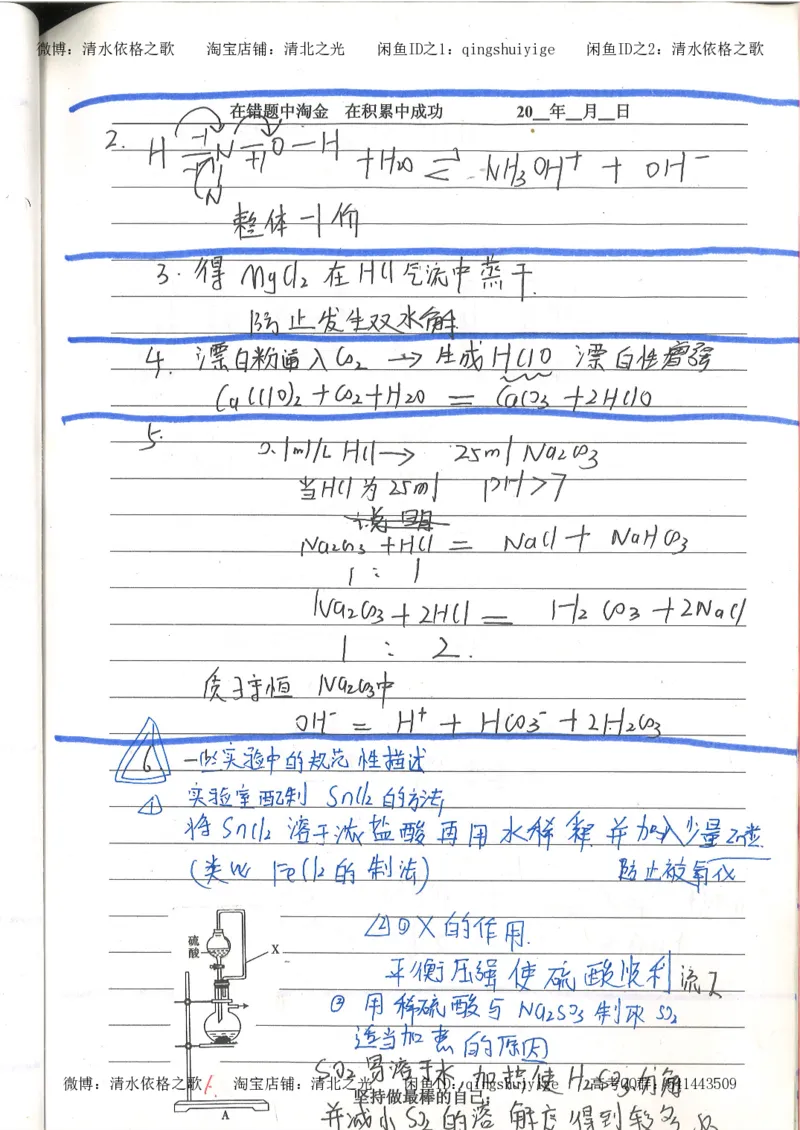 微博：清水依格之歌 淘宝店铺：清北之光 闲鱼ID之1：qingshuiyige 闲鱼ID之2：清水依格之歌
在错题中淘金 在积累中成功 20__年__月__日
2. H -1 N +1 O — H + H2O ⇌ NH3OH+ + OH-
-1 N
整体-1价
3. 得 MgCl2 在 HCl 气流中蒸干.
防止发生双水解
4. 漂白粉通入CO2 → 生成HClO 漂白性增强
Ca(ClO)2 + CO2 + H2O = CaCO3 + 2HClO
5.
0.1mol/L HCl → 25ml Na2CO3
当HCl为25ml pH>7
说明
Na2CO3 + HCl = NaCl + NaHCO3
1 : 1
Na2CO3 + 2HCl = H2CO3 + 2NaCl
1 : 2.
质子守恒 Na2CO3中
OH- = H+ + HCO3- + 2H2CO3
6 一些实验中的规范性描述
① 实验室配制 SnCl2 的方法,
将SnCl2 溶于浓盐酸再用水稀释并加入少量Zn
(类似 FeCl2的制法) 防止被氧化
② ①X的作用.
硫酸
X
平衡压强使硫酸顺利流下
② 用稀硫酸与Na2SO3制取SO2
适当加热的原因
SO2易溶于水,加热使H2SO3分解
微博：清水依格之歌 淘宝店铺：清北之光 闲鱼ID：qingshuiyige 高考QQ群：941443509
坚持做最棒的自己！
A
并减小SO2的溶解度得到较多